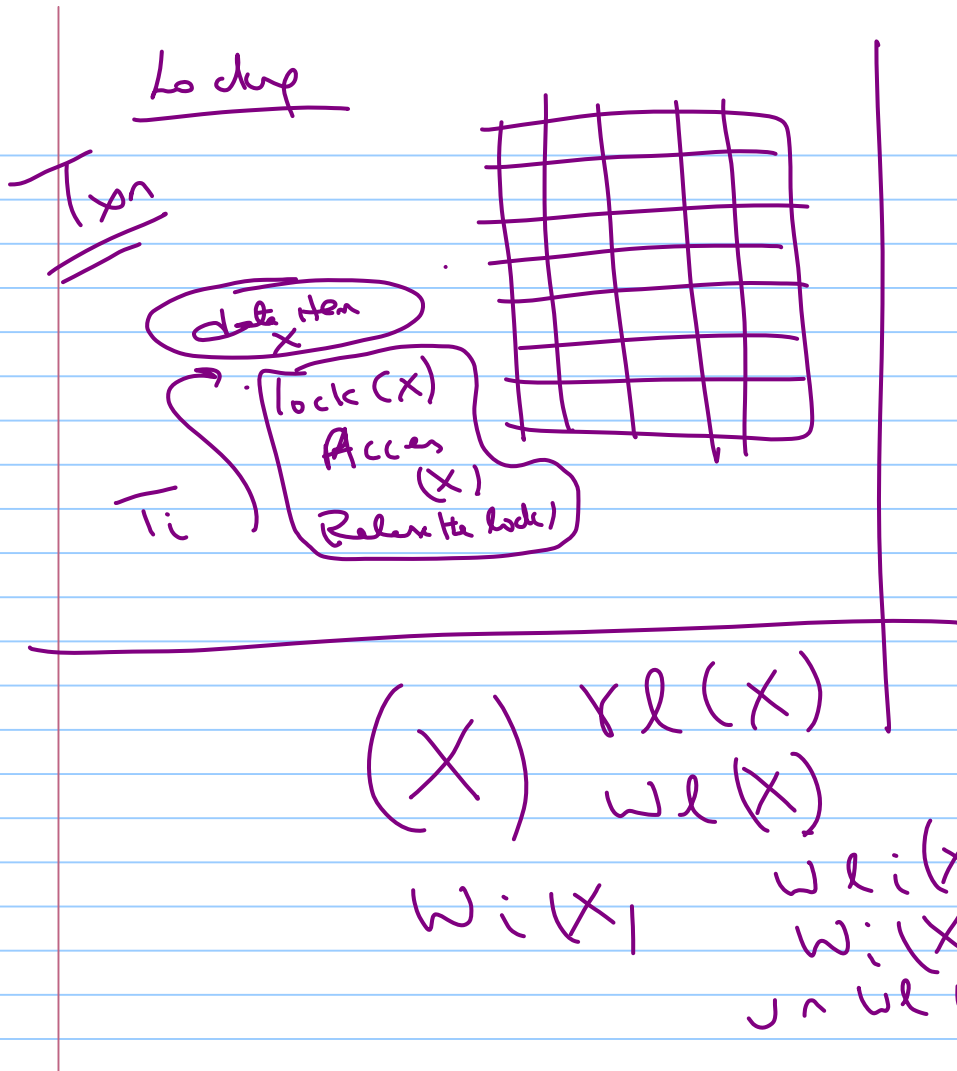 Locking
Txn
data item
X
lock (X)
Access
(X)
Ti
Release the lock)
(X)
rl (X)
wl (X)
wli (X
Wi (X)
Wi (X
un wl (